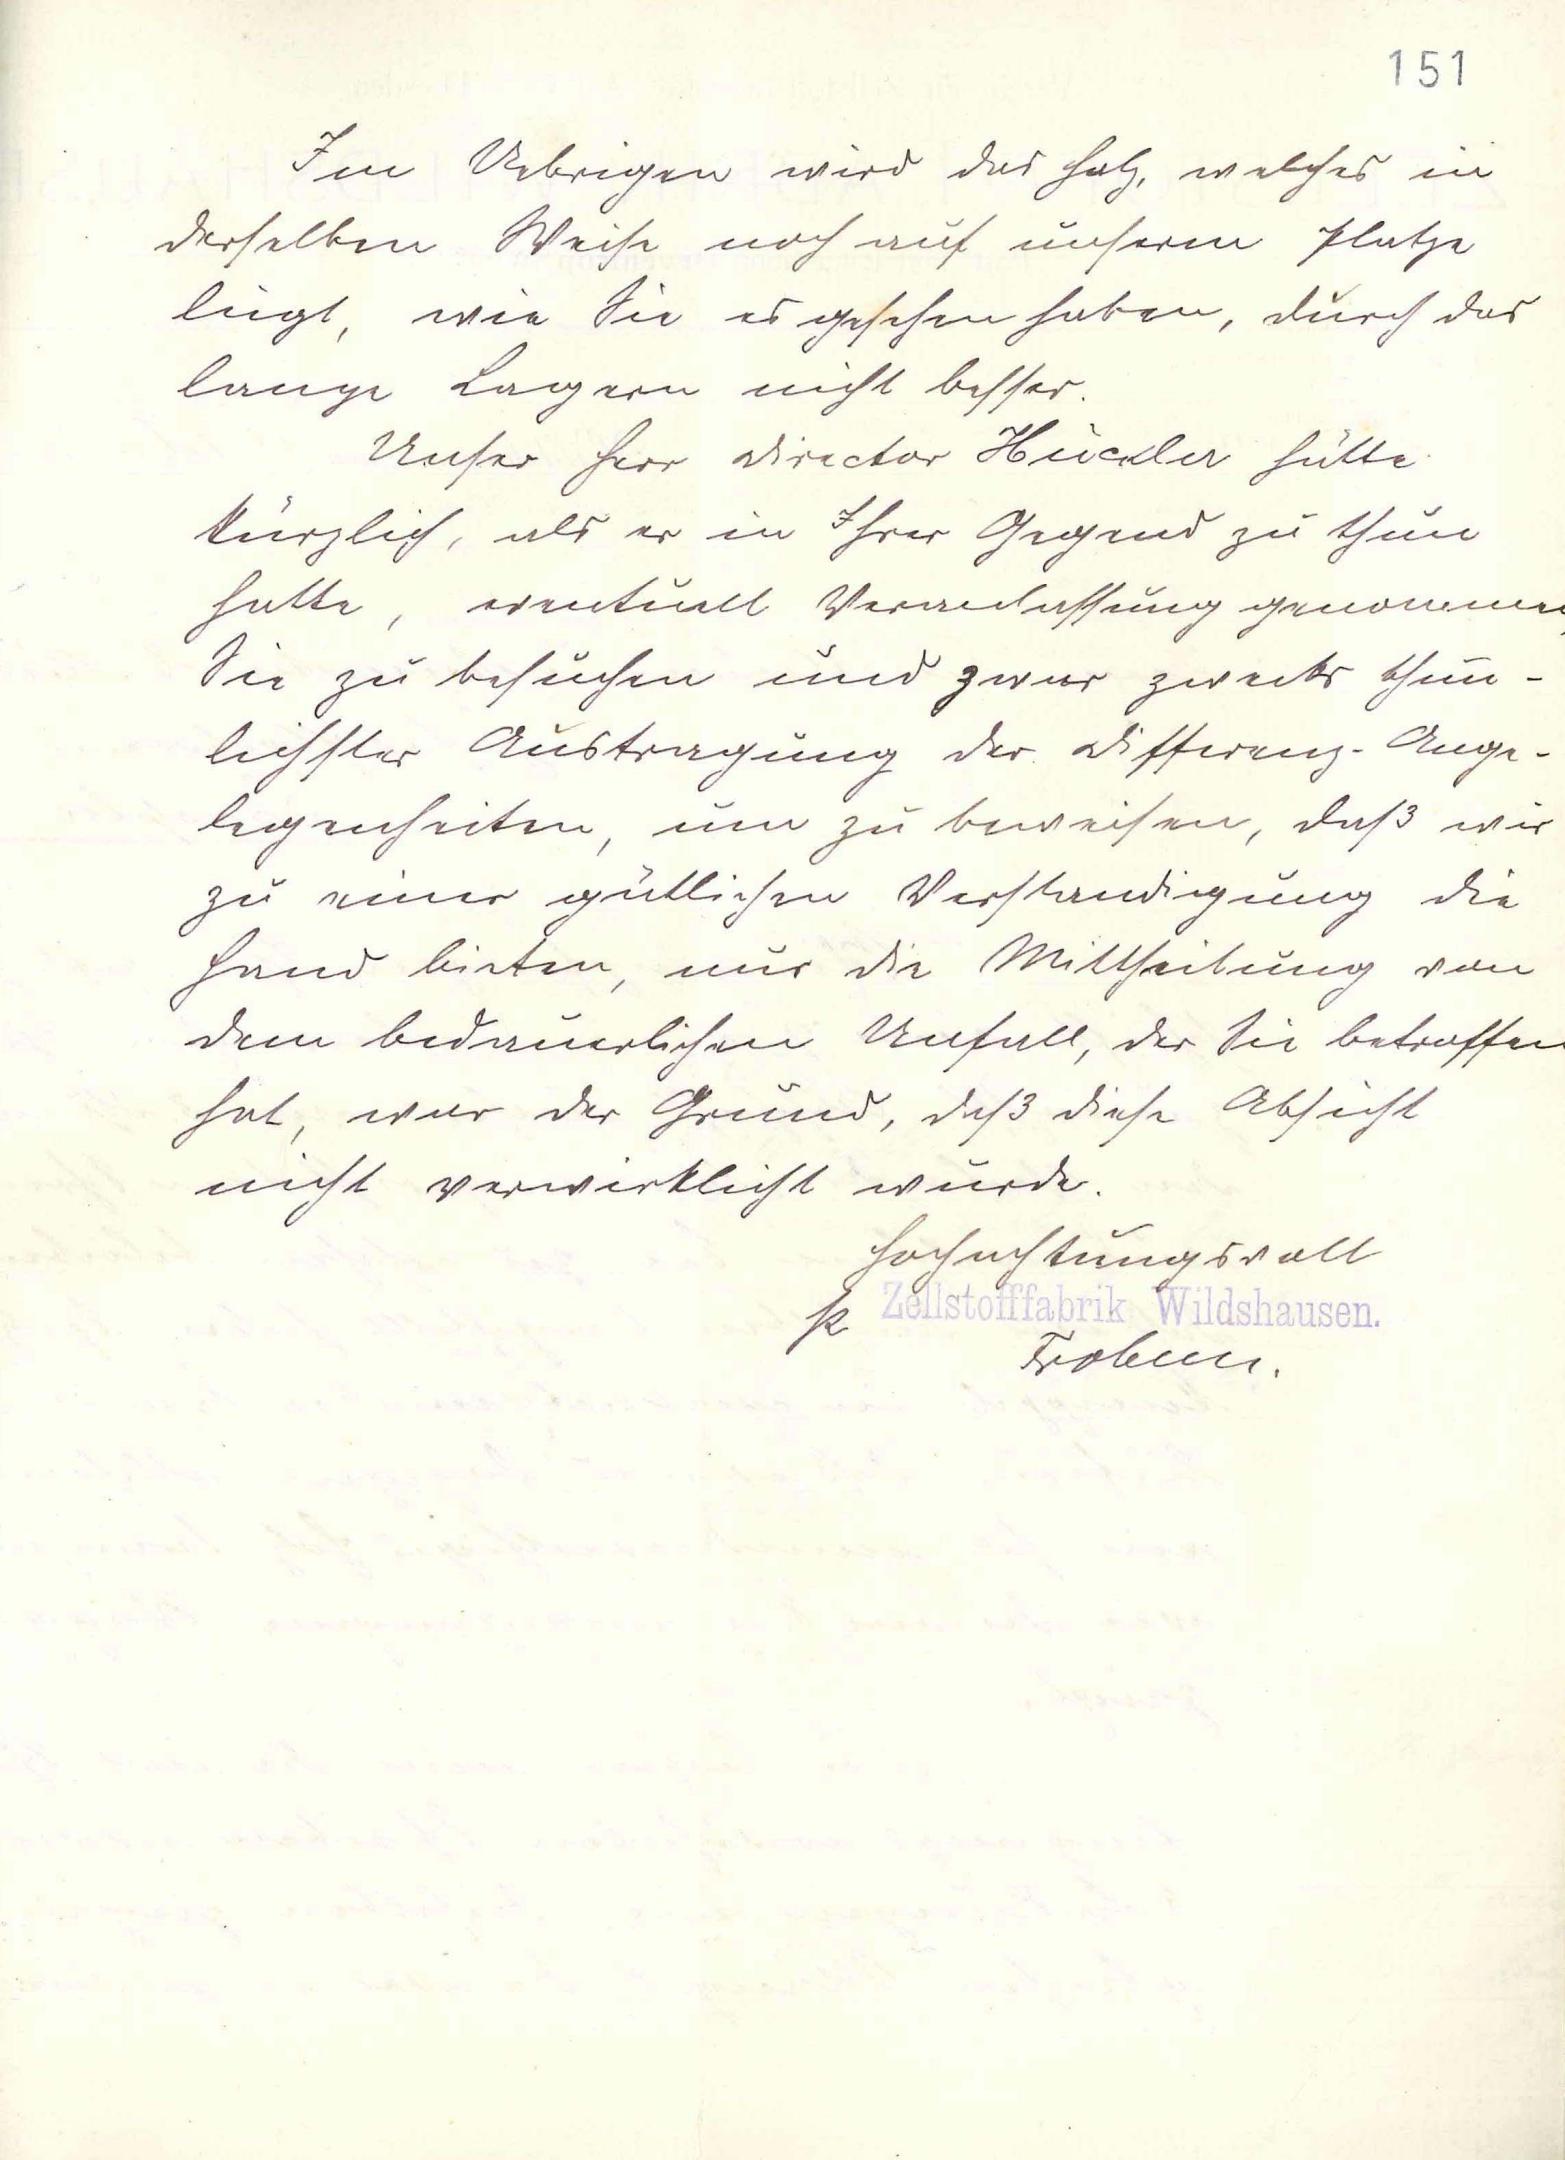 151
Im Uebrigen wird das Holz, welches in
derselben Weise noch auf unserm Platze
liegt, wie Sie es gesehen haben, durch das
lange Lagern nicht besser.
Unser Herr Director hätte
kürzlich, als er in Ihrer Gegend zu thun
hatte, eventuell Veranlassung genommen,
Sie zu besuchen und zwar zwecks thun-
lichster Austragung der Differenz-Ange-
legenheiten, um zu beweisen, daß wir
zu einer gütlichen Verständigung die
Hand bieten, nur die Mittheilung von
dem bedauerlichen Unfall, der Sie betroffen
hat, war der Grund, daß diese Absicht
nicht verwirklicht wurde.
Hochachtungsvoll
Zellstofffabrik Wildshausen.